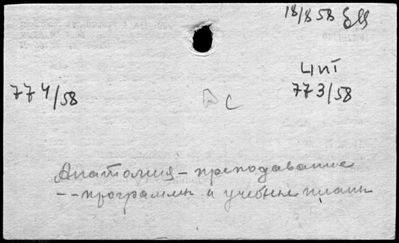 18/8 58
774/58
773/58
Анатомия – преподавание
-- программы и учебные планы